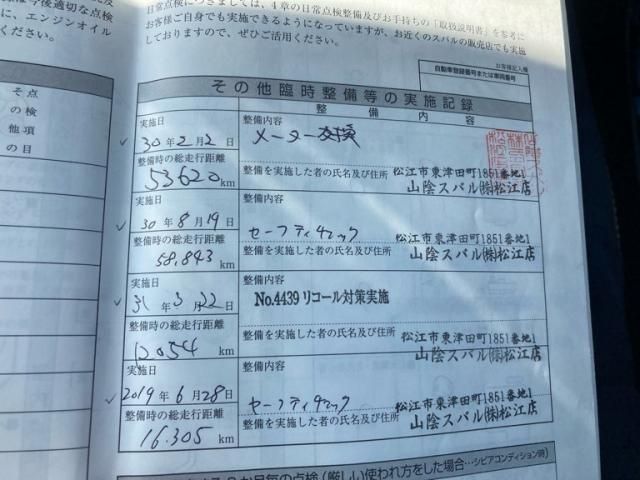 日常点検につきましては、4章の日常点検整備及びお手持ちの「取扱説明書」を参考に
お客様ご自身でも実施できるようになっていますが、お近くのスバルの販売店でも実施
しておりますので、ぜひご活用ください。
は今後適切な点検
に、エンジンオイル
お客様記入欄
自動車登録番号または車両番号
そ点
の検
他項
の目
その他臨時整備等の実施記録
整備内容
実施日
30年2月2日
整備内容
メーター交換
整備時の総走行距離
53620km
整備を実施した者の氏名及び住所
松江市東津田町1851番地1
山陰スバル㈱松江店
実施日
30年8月19日
整備内容
セーフティチェック
整備時の総走行距離
58.843km
整備を実施した者の氏名及び住所
松江市東津田町1851番地1
山陰スバル㈱松江店
実施日
31年3月22日
整備内容
No.4439 リコール対策実施
整備時の総走行距離
12054km
整備を実施した者の氏名及び住所
松江市東津田町1851番地1
山陰スバル㈱松江店
実施日
2019年6月28日
整備内容
セーフティチェック
整備時の総走行距離
16.305km
整備を実施した者の氏名及び住所
松江市東津田町1851番地1
山陰スバル㈱松江店
か月毎の点検(厳しい使われ方をした場合…シビアコンディション時)